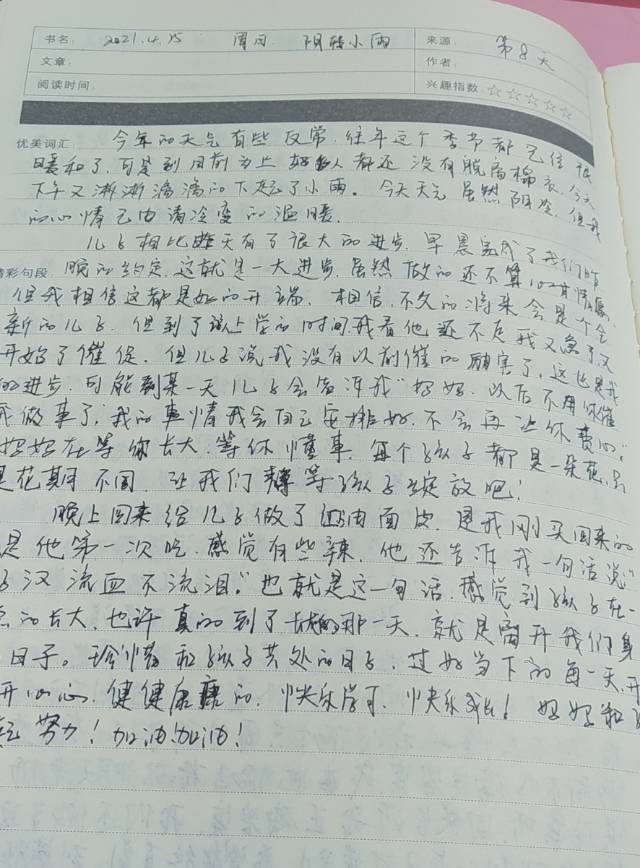 书名: 2021.4.15 周四 阴转小雨 来源: 第8天
文章: 作者:
阅读时间: 兴趣指数 ☆☆☆☆☆
优美词汇 今年的天气有些反常,往年这个季节都已经很
暖和了,可是到目前为止好多人都还没有脱离棉衣,今天
下午又淅淅沥沥的下起了小雨。今天天气虽然阴冷,但我
的心情已由清冷变的温暖.
儿子相比昨天有了很大的进步.早晨完成了我们昨
精彩句段 晚的约定,这就是一大进步,虽然做的还不算
但我相信这都是好的开端.相信,不久的将来会是个全
新的儿子.但到了该上学的时间我看他还不走我又急了,又
开始了催促.但儿子说我没有以前催的厉害了,这也是我
的进步,可能到某一天儿子会告诉我"妈妈,以后不用你催
我做事了,我的事情我会自己安排好,不会再让你费心."
妈妈在等你长大,等你懂事,每个孩子都是一朵花,只
是花期不同 让我们静等孩子绽放吧!
晚上回来给儿子做了油面皮,是我刚买回来的
是他第一次吃,感觉有些辣.他还告诉我一句话说"
子汉流血不流泪."也就是这一句话,感觉到孩子在一
点的长大,也许真的到了长大的那一天,就是离开我们身
日子。珍惜和孩子共处的日子,过好当下的每一天,开
开心心,健健康康的,快乐学习,快乐成长!妈妈和
起努力!加油加油!